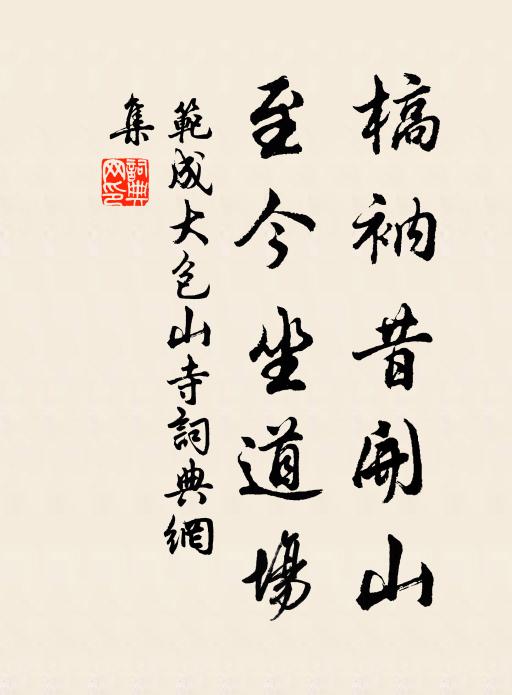 槁衲昔開山
至今坐道場
範成大包山寺詞典網
集
詞典網印